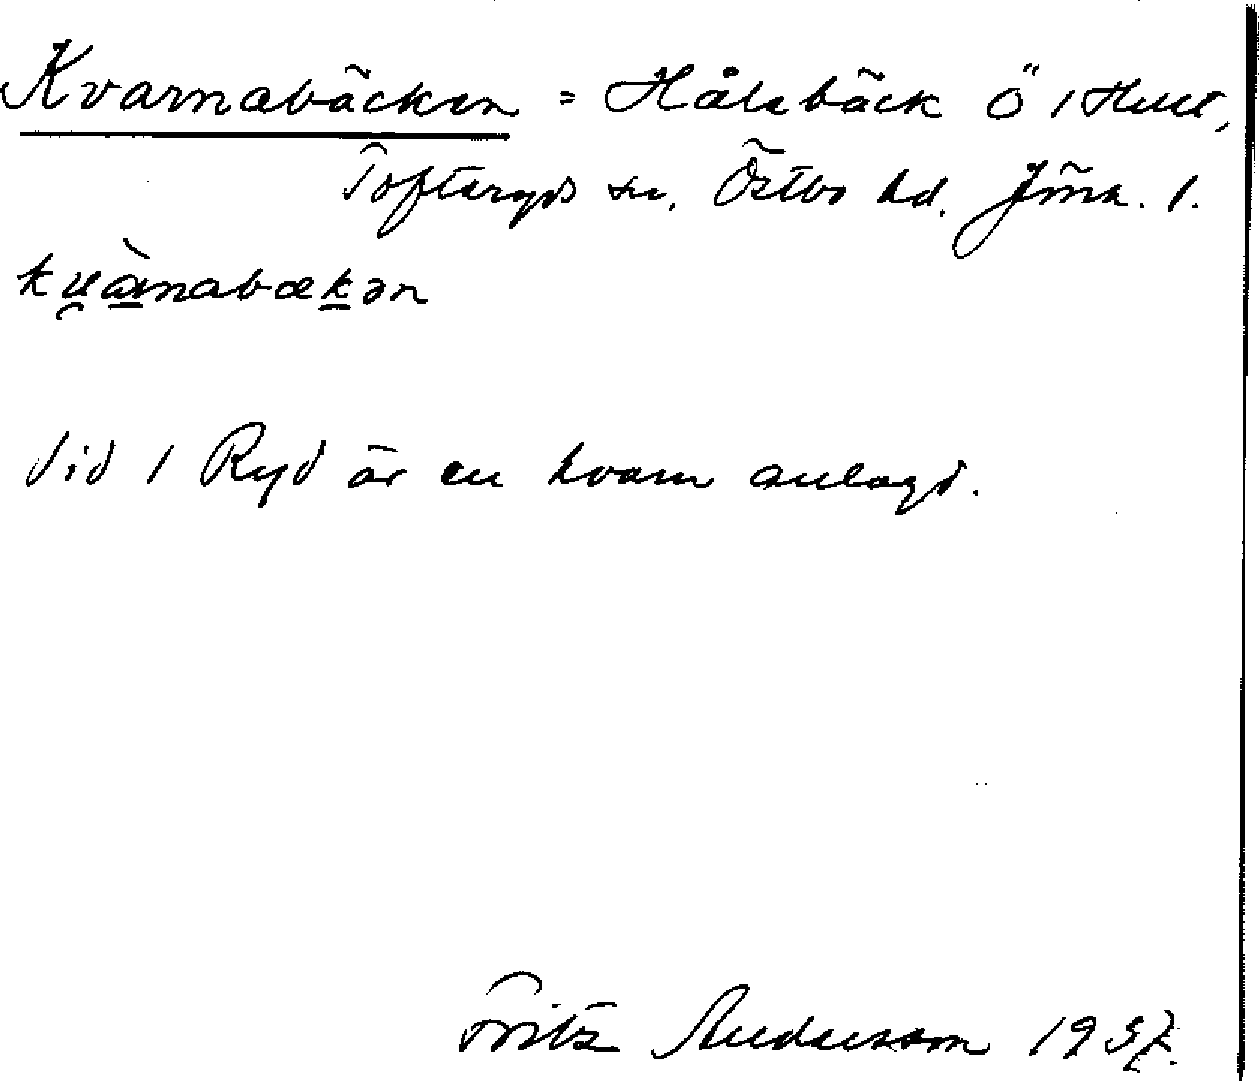 Kvarnabäcken = Hålabäck Ö 1 Hult,
Tofteryds sn, Östbo hd. Jönk. l.
ku̯à̱nabæḵən
Vid 1 Ryd är en kvarn anlagd.
Fritz Andersson 1937.